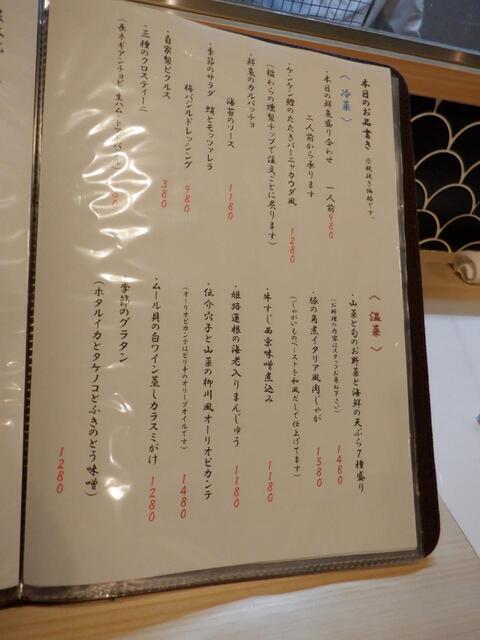 本日のお品書き ※税抜き価格です。
〈 冷菜 〉
・本日の鮮魚盛り合わせ 一人前980
二人前から承ります
・ケンケン鰹のたたきバーニャカウダ風
(稲わらの燻製チップで注文ごとに炙ります) 1280
・鮮魚のカルパッチョ
海苔のソース 1180
・季節のサラダ 蛸とモッツァレラ
梅バジルドレッシング 980
・自家製ピクルス 380
・三種のクロスティーニ
(長ネギアンチョビ 生ハム
〈 温菜 〉
・山菜と旬のお野菜と海鮮の天ぷら7種盛り
(お料理の内容はスタッフお尋ね下さい) 1480
・豚の角煮イタリア風肉じゃが
(じゃがいものペーストを和風だしで仕上げてます) 1580
・牛すじ西京味噌煮込み 1180
・姫路蓮根の海老入りまんじゅう 1180
・伝介穴子と山菜の柳川風オーリオピカンテ
(オーリオピカンテはピリ辛のオリーブオイルです) 1480
・ムール貝の白ワイン蒸しカラスミがけ 1280
・季節のグラタン
(ホタルイカとタケノコとふきのとう味噌) 1280